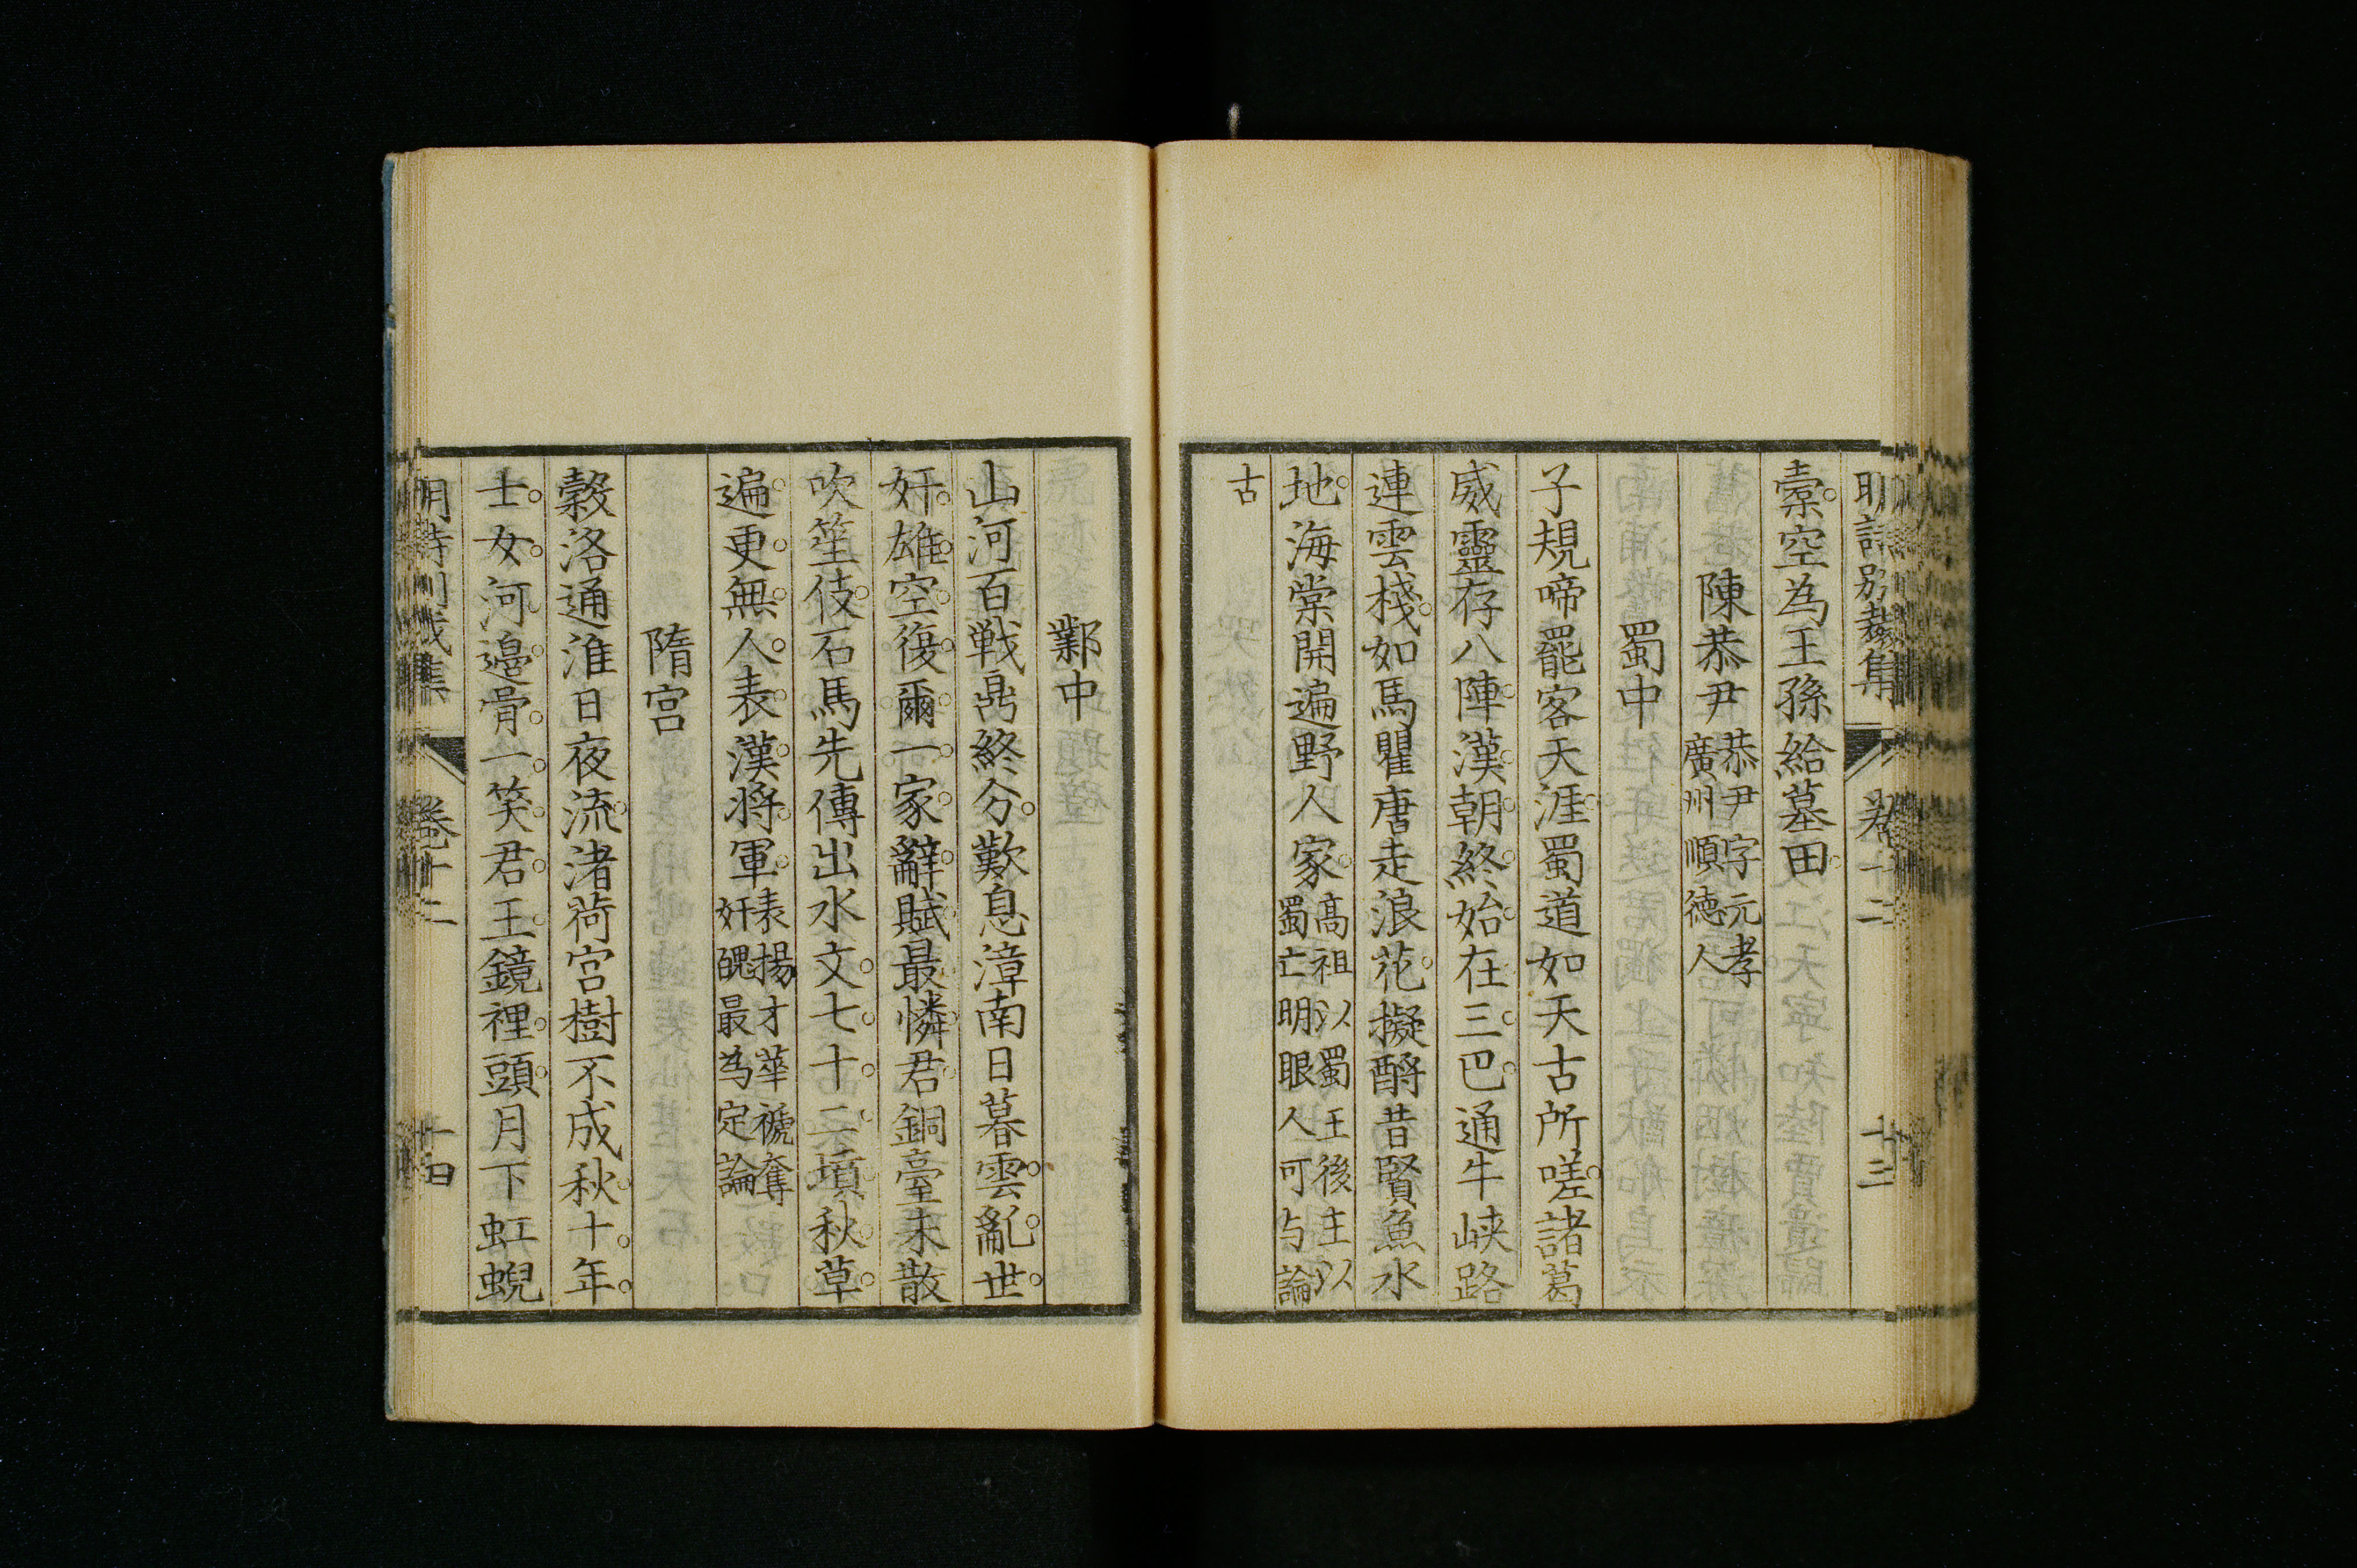 明詩別裁集 卷十二 十三
索空為王孫給墓田
陳恭尹 恭尹字元孝廣州順徳人
蜀中
子規啼罷客天涯蜀道如天古所嗟諸葛
威靈存八陣漢朝終始在三巴通牛峽路
連雲棧如馬瞿唐走浪花擬酹昔賢魚水
地海棠開遍野人家 高祖以蜀王後主以蜀亡明眼人可与論
古
鄴中
山河百戰鼎終分歎息漳南日暮雲亂世
奸雄空復爾一家辭賦最憐君銅臺未散
吹笙伎石馬先傳出水文七十二墳秋草
遍更無人表漢將軍 表揚才華褫奪奸魄最為定論
隋宮
榖洛通淮日夜流渚荷宮樹不成秋十年
士女河邊骨一笑君王鏡裡頭月下虹蜺
明詩別裁集 卷十二 十四